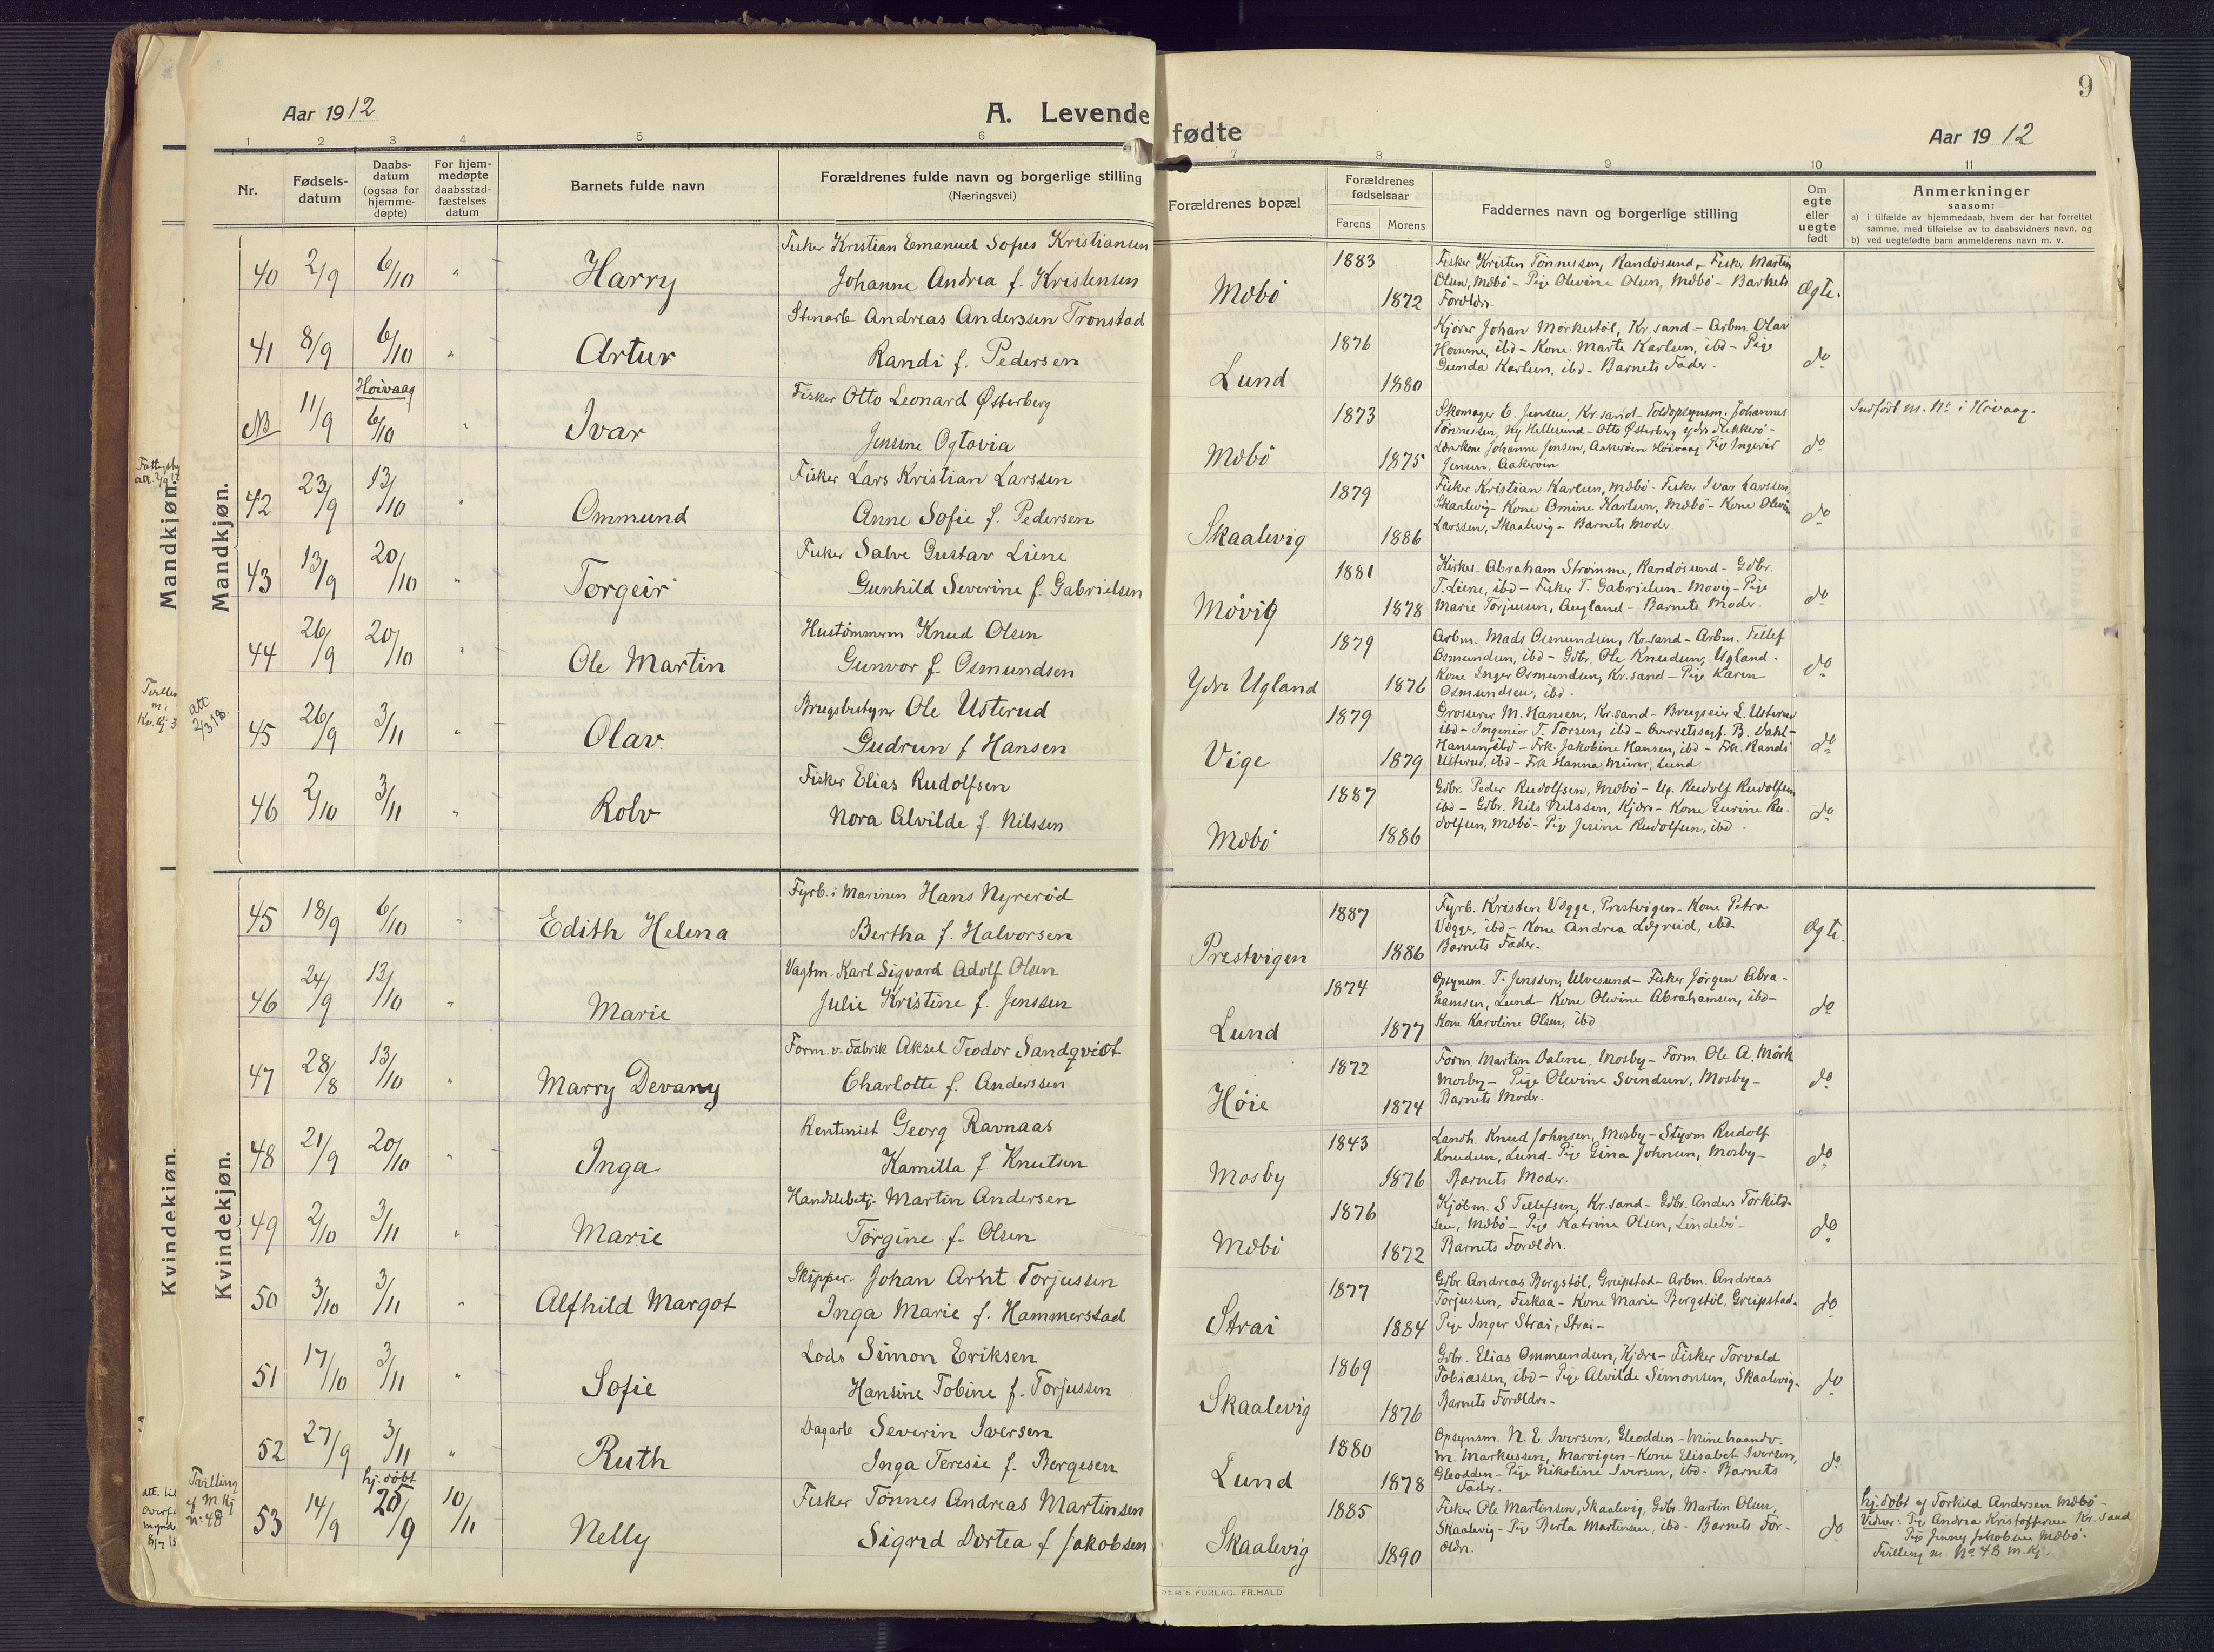 Aar 1912
A. Levende
1 2 3 4 5 6
Nr.
Fødsels-
datum
Daabs-
datum
(ogsaa for
hjemme-
døpte)
For hjem-
medøpte
daabsstad-
fæstelses
datum
Barnets fulde navn
Forældrenes fulde navn og borgerlige stilling
(Næringsvei)
9
fødte
Aar 1912
7 8 9 10 11
Forældrenes bopæl
Forældrenes
fødselsaar
Farens Morens
Faddernes navn og borgerlige stilling
Om
egte
eller
uegte
født
Anmerkninger
saasom:
a) i tilfælde av hjemmedaab, hvem der har forrettet
samme, med tilføielse av to daabsvidners navn, og
b) ved uegtefødte barn anmelderens navn m. v.
Mandkjøn.
Mandkjøn.
40 2/9 6/10 " Harry
Fisker Kristian Emanuel Sofus Kristiansen
Johanne Andrea f. Kristensen
Møbø 1883 1872
Fisker Kristen Tønnessen, Randøsund - Fisker Martin
Olsen, Møbø - Pige Olevine Olsen, Møbø - Barnets
Forældr.
Ægte.
41 8/9 6/10 " Artur
Stenarb Andreas Anderssen Tronstad
Randi f. Pedersen
Lund 1876 1880
Kjører Johan Mørkestøl, Kr.sand - Arbm. Olav
Homme, ibd - Kone Marte Karlsen, ibd - Pige
Gunda Karlsen, ibd - Barnets Fader.
do
NB 11/9 Høivaag 6/10 " Ivar
Fisker Otto Leonard Østerberg
Jensine Ogtavia
Møbø 1873 1875
Skomager E. Jensen, Kr.sand - Toldopsynsm. Johannes
Tønnesen, Ny Hellesund - Otto Østerberg ydr. Flekkerø -
Johanne Jensen, Aakerøen Høivaag Pige Ingevar
Jensen, Aakerøen
do
Indført m. No i Høivaag.
42 23/9 13/10 " Ommund
Fisker Lars Kristian Larssen
Anne Sofie f. Pedersen
Skaalevig 1879 1886
Fisker Kristian Karlsen, Møbø - Fisker Ivar Larssen,
Skaalevig - Kone Omine Karlsen, Møbø - Kone Olevine
Larssen, Skaalevig - Barnets Moder.
do
43 13/9 20/10 " Torgeir
Fisker Salve Gustav Liene
Gunhild Severine f. Gabrielsen
Møvig 1881 1878
Kirkes. Abraham Strømme, Randøsund - Gdbr.
T. Liene, ibd - Fisker T. Gabrielsen Møvig - Pige
Marie Torjusen, Augland - Barnets Moder.
do
44 26/9 20/10 " Ole Martin
Hustømmerm Knud Olsen
Gunvor f. Osmundsen
Ydr Ugland 1879 1876
Arbm. Mads Osmundsen, Kr.sand - Arbm. Tellef
Osmundsen, ibd - Gdbr. Ole Knudsen, Ugland -
Kone Inger Osmundsen, Kr.sand - Pige Karen
Osmundsen, ibd.
do
att
2/3 13.
45 26/9 3/11 " Olav.
Brugsbestyrer Ole Usterud
Gudrun f Hansen
Vige 1879 1879
Grosserer M. Hansen, Kr.sand - Brugseier L. Usterud
ibd - Ingeniør T. Torsen, ibd - Overretssagf. B. Dahl-
Hansen, ibd - Frk. Jakobine Hansen, ibd - Frk. Randi
Usterud, ibd - Frk Hanna Mürer, Lund
do
46 2/10 3/11 " Rolv
Fisker Elias Rudolfsen
Nora Alvilde f. Nilssen
Møbø 1887 1886
Gdbr. Peder Rudolfsen, Møbø - Ug. Rudolf Rudolfsen
ibd - Gdbr. Nils Nilssen, Kjære - Kone Gurine Ru-
dolfsen, Møbø - Pige Jesine Rudolfsen, ibd.
do
Kvindekjøn.
Kvindekjøn.
45 18/9 6/10 " Edith Helena
Fyrb. i Marinen Hans Nyrerød
Bertha f. Halvorsen
Prestvigen 1887 1886
Fyrb. Kristen Vægge, Prestvigen - Kone Petra
Vægge, ibd - Kone Andrea Lægreid, ibd -
Barnets Fader.
Ægte.
46 24/9 13/10 " Marie
Vagtm. Karl Sigvard Adolf Olsen
Julie Kristine f. Jenssen
Lund 1874 1877
Opsynsm. T. Jenssen, Ulvesund - Fisker Jørgen Abra-
hamsen, Lund - Kone Olevine Abrahamsen, ibd -
Kone Karoline Olsen, ibd
do
47 28/8 13/10 " Marry Devany
Form. v. Fabrik Aksel Teodor Sandqvist
Charlotte f. Anderssen
Høie 1872 1874
Form. Martin Dalene, Mosby - Form. Ole A. Mørk
Mosby - Pige Olevine Svendsen, Mosby -
Barnets Moder.
do
48 21/9 20/10 " Inga
Rentenist Georg Ravnaas
Kamilla f. Knutsen
Mosby 1843 1876
Landh. Knud Johnsen, Mosby - Styrm Rudolf
Knudsen, Lund - Pige Gina Johnsen, Mosby -
Barnets Moder.
do
49 2/10 3/11 " Marie
Handelsbetj. Martin Andersen
Torgine f. Olsen
Møbø 1876 1872
Kjøbm. S Tellefsen, Kr.sand - Gdbr. Anders Torkild-
sen, Møbø - Pige Katrine Olsen, Lindebø -
Barnets Forældr.
do
50 3/10 3/11 " Alfhild Margot
Skipper. Johan Arnt Torjussen
Inga Marie f. Hammerstad
Strai 1877 1884
Gdbr. Andreas Bergstøl, Greipstad - Arbm. Andreas
Torjussen, Fiskaa - Kone Marie Bergstøl, Greipstad -
Pige Inger Strai, Strai -
do
51 17/10 3/11 " Sofie
Lods Simon Eriksen
Hansine Tobine f. Torjussen
Skaalevig 1869 1876
Gdbr. Elias Ommundsen, Kjære - Fisker Torvald
Tobiassen, ibd - Pige Alvilde Simonsen, Skaalevig -
Barnets Forældre -
do
52 27/9 3/11 " Ruth
Dagarb Severin Iversen
Inga Teresie f. Børgesen
Lund 1880 1878
Opsynsm. N. E. Iversen, Gleodden - Minehaandv.
M. Markussen, Marvigen - Kone Elisabet Iversen,
Gleodden - Pige Nikoline Iversen, ibd. - Barnets
Fader.
do
Tvilling
af M.Kj
No 48
53 14/9 hj. døbt 20/9 10/11 Nelly
Fisker Tønnes Andreas Martinsen
Sigrid Dortea f Jakobsen
Skaalevig 1885 1890
Fisker Ole Martinsen, Skaalevig, Gdbr. Martin Olsen,
Skaalevig - Pige Berta Martinsen, ibd - Barnets For-
ældr.
do
hj. døbt af Torkild Andersen Møbø -
Vidner: Pige Andrea Kristoffersen Kr.sand
Pige Jenny Jakobsen Møbø.
Tvilling m. No 48 m.kj.
FORLAG. FR. HALD